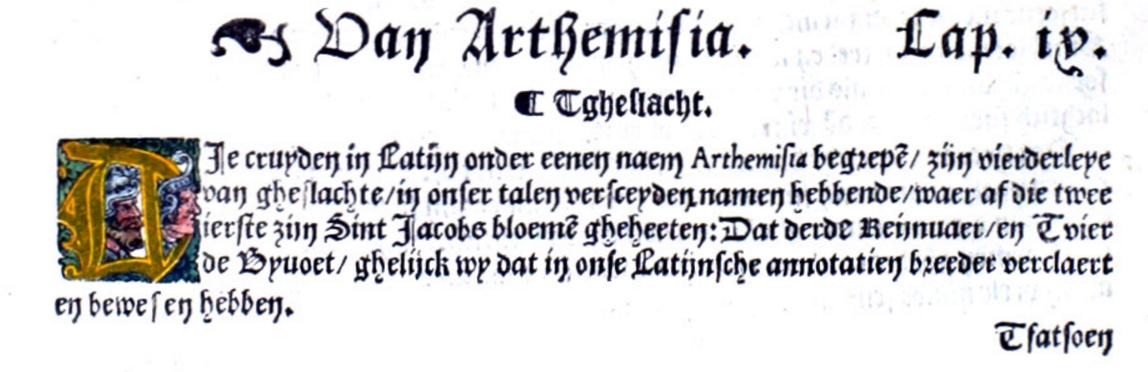 ☙ Van Arthemisia. Cap. ix.
¶ Tgheslacht.
DIe cruyden in Latijn onder eenen naem Arthemisia begrepē/ zijn vierderleye
van gheslachte/in onser talen versceyden namen hebbende/waer af die twee
ierste zijn Sint Jacobs bloemē gheheeten: Dat derde Reijnuaer/en Tvier
de Byuoet/ ghelijck wy dat in onse Latijnsche annotatien breeder verclaert
en bewesen hebben.
Tfatsoen